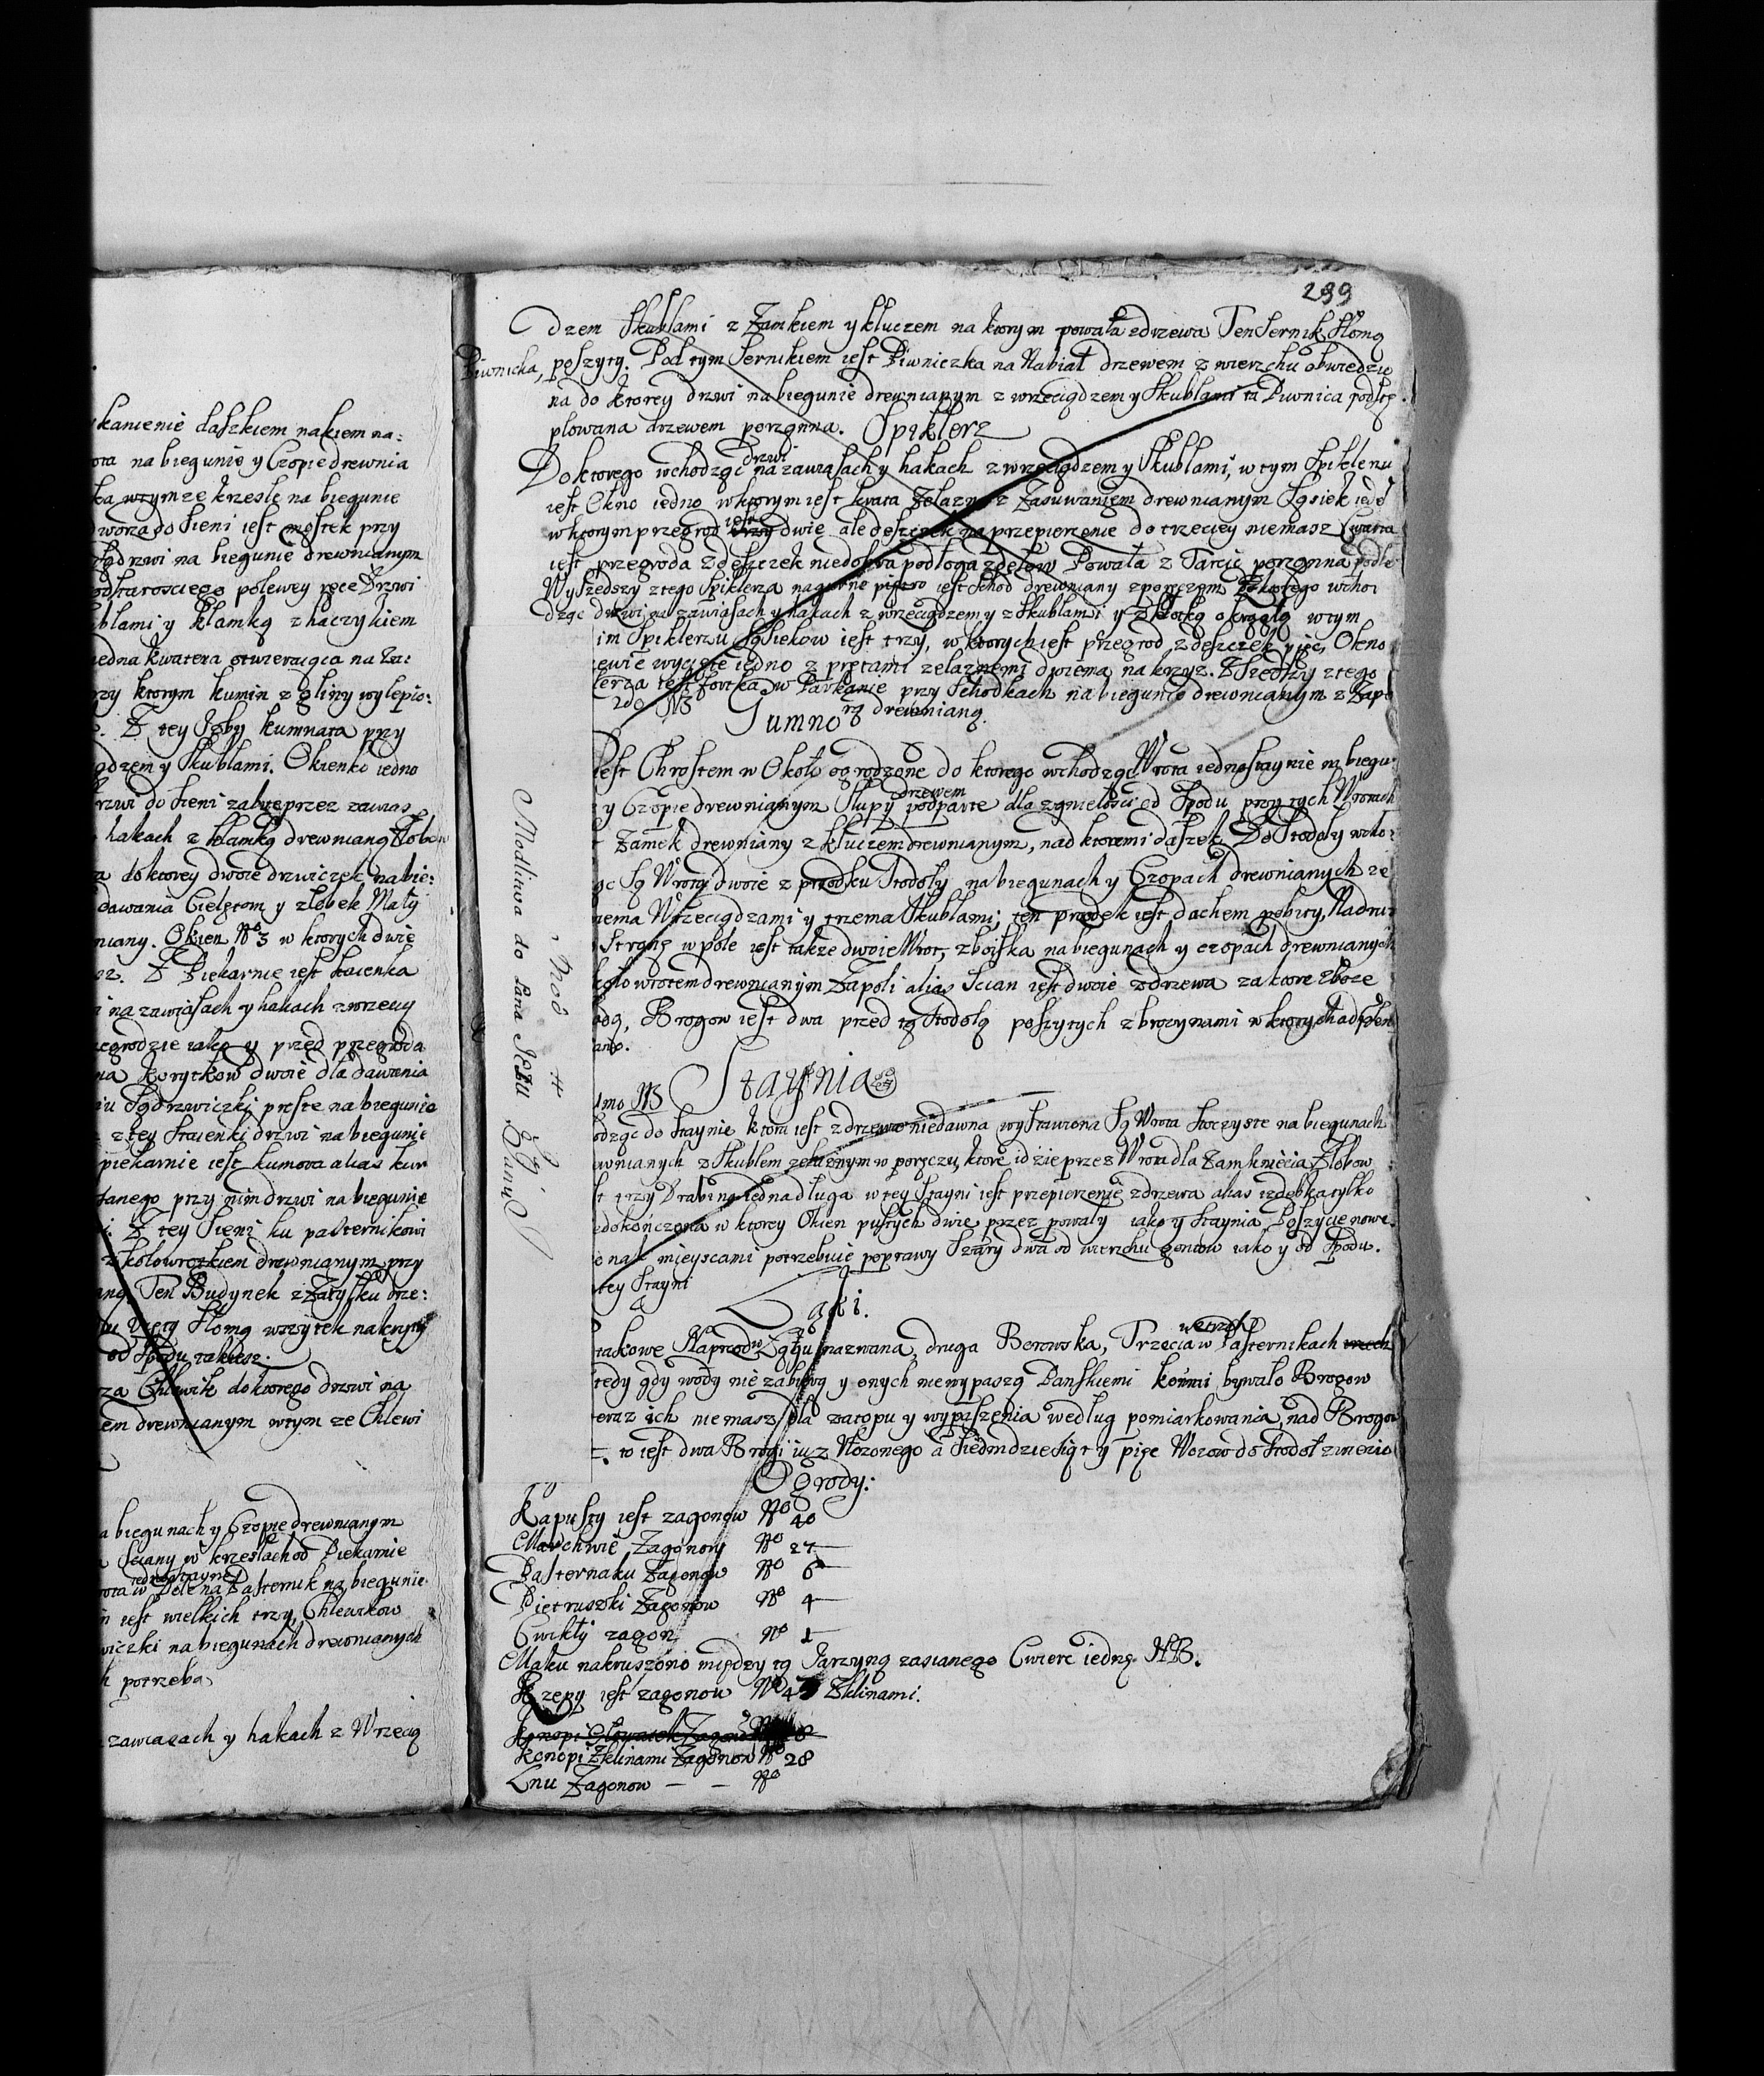 kanienie daszkiem nakiem na:
ota na biegunie y Czopie drewnia
ka wtymze krzesle na biegunie
dworza do sieni iest mostek przy
drzwi na biegunie drewnianym
odstarosciego polewey ręce Drzwi
ublami y klamką z haczykiem
iedna kwatera otwieraiąca na Za:
rzy ktorym kumin z gliny wylepio:
Z tey Izby kumnata przy
ądzem y Skublami. Okienko iedno
rzwi do sieni zabite przez zawias
hakach z klamką drewnianą Zlobow
a do ktorey dwoie drzwiczek na bie:
dawania Cielętom y zlobek Maly
niany. Okien No 3 w ktorych dwie
Z Piekarnie iest staienka
i na zawiasach y hakach z wrzecią
zegrodzie iako y przed przegroda
na korytkow dwoie dla dawania
iu Są drzwiczki proste na biegunie
z tey Staienki drzwi na biegunie
piekarnie iest kumora alias kur
danego przy nim drzwi na biegunie
i. Z tey Sieni ku pasternikowi
z kolowrotkiem drewnianym przy
aną. Ten Budynek z Zatylku drze:
Słomą wszytek nakryty
od Spodu zakłesz.
za Chlewik do ktorego drzwi na
em drewnianym wtym ze Chlewi
a biegunach y Czopie drewnianym
Sciany w krzeslach od Piekarnie
iednostayne
rota w Pole na Pasternik na biegunie
n iest wielkich trzy, Chlewkow
wiczki na biegunach drewnianych
h potrzeba
zawiasach y hakach z Wrzecią
299
dzem Skublami z Zamkiem y kluczem na ktorym powała zdrzewa Ten Sernik Słomą
Piwnicka, poszyty. Pod tym Sernikiem iest Piwniczka na Nabiał drzewem z wierzchu obwiedzio
na do ktorey drzwi na biegunie drewnianym z wrzeciądzem y Skublami ta Piwnica podstę
plowana drzewem porządna. Spiklerz
drzwi
Do ktorego wchodząc na zawiasach y hakach z wrzeciądzem y Skublami, w tym Spiklerzu
iest Okno iedno w ktorym iest krata zelazna z Zasuwaniem drewnianym Sąsiek ied
iest
w ktorym przegrod trzy dwie ale deszczek na przepierzenie do trzeciey niemasz Czwarta
iest przegroda z deszczek niedobra podłoga zdelow Powała z Tarcic porządna podle
Wyszedszy z tego Spiklerza na gurne piętro iest Schod drewniany z poręczem Do ktorego wcho:
dząc drzwi na zawiasach y hakach z wrzeciądzem y z Skublami y z kłotką okrągłą w tym
im Spiklerzu Sąsiekow iest trzy, w ktorych iest przegrod z deszczek pięc, Okno
ewie wycięte iedno z prętami zelaznemi dwiema na krzyz. Zszedszy z tego
lerza iest fortka w Parkanie przy Schodkach na biegunie drewnianym z Zapo
2do NB Gumno rą drewnianą.
Iest Chrostem w Okoł ogrodzone do ktorego wchodząc Wrota iednostaynie na biegu:
drzewem
y Czopie drewnianym Słupy podparte dla zgniełosci od Spodu przy tych Wrotach
Zamek drewniany z kluczem drewnianym, nad ktoremi daszek. Do Stodoły wcho:
ąc Są Wrota dwoie z przodku Stodoły na biegunach y Czopach drewnianych ze
iema Wrzeciądzami y trzema Skublami, ten przodek iest dachem pobity, Na dru
Stronę w pole iest takze dwoie Wrot, z boiska na biegunach y czopach drewnianych
kołowrotem drewnianym Zapoli alias Scian iest dwoie z drzewa za ktore zboze
adą, Brogow iest dwa przed tą Stodołą poszytych z brozynami w ktorych
ano.
1mo NB Staynia
odząc do Staynie ktora iest z drzewa niedawna wystawiona Są Wrota stoczyste na biegunach
ewnianych z Skublem zelaznym w poręczu, ktore idzie przez Wrota dla Zamkniecia, Zlobow
st trzy Drabina iedna długa w tey Stayni iest przepierzenie z drzewa alias izdebka tylko
edokończona w ktorey Okien pustych dwie przez powały iako y Staynia. Poszycie nowe.
o nak mieyscami potrzebuie poprawy Szary dwa od wierzchu gontow iako y od Spodu.
tey Stayni
Łąki.
takowe Naprzod w Ługu nazwana, druga Borowska, Trzecia w Pasternikach
tedy gdy wody nie zabiorą y onych niewypaszą Panskiemi konmi bywało Brogow
teraz ich niemasz dla zatopu y wypaszenia według pomiarkowania nad Brogow
to iest dwa Brogi iuz Włozonego a Siedmdziesiąt y pięc Wozow do Stodoł zwiezio
Ogrody:
Kapusty iest zagonow No 40
Marchwie Zagonow No 27
Pasternaku Zagonow No 6
Pietruszki Zagonow No 4
Cwikły zagon No 1
Maku nakruszono między tą Jarzyną zasianego Cwierc iednę. NB.
Rzepy iest zagonow No 4 Zklinami.
Konopi Zklinami Zagonow No 28
Lnu Zagonow — — No
Modlitwa do Pana IEzu